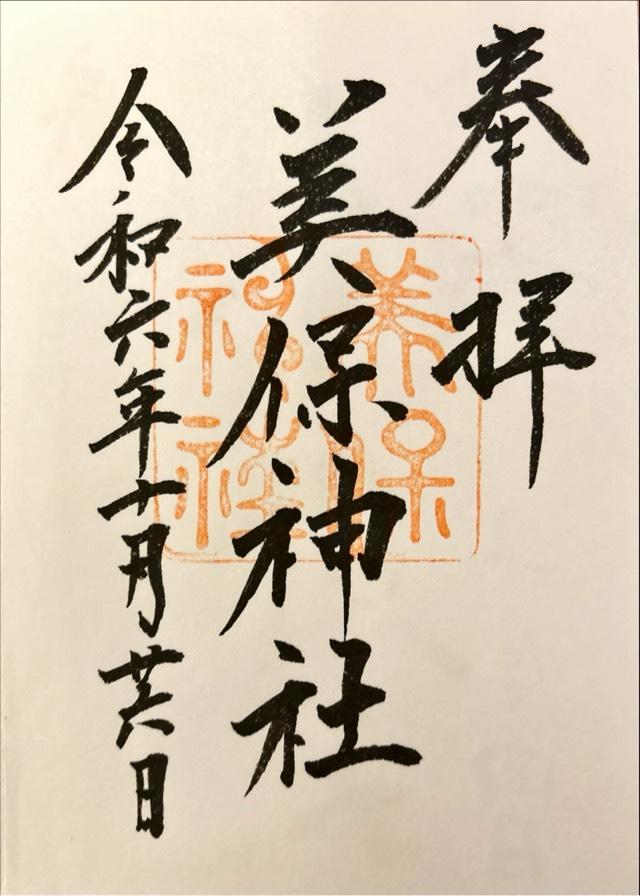 奉拝
美保神社
令和六年十月廿六日
美保